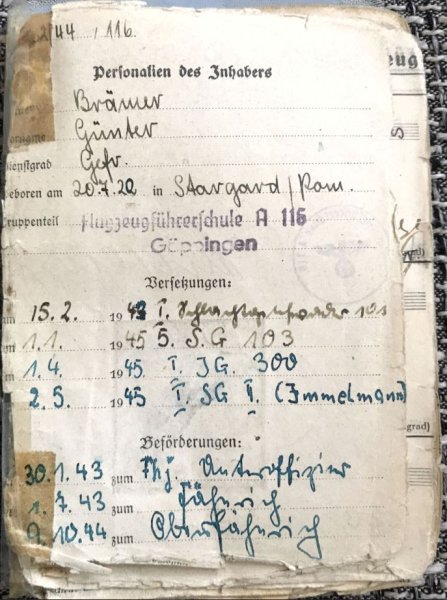 2/44 /116.
Personalien des Inhabers
Brämer
Günter
Dienstgrad Gefr.
Geboren am 20.7.22 in Stargard/Pom.
Truppenteil Flugzeugführerschule A 116
Göppingen
Versetzungen:
am 15.2. 1943 I. Schlachtgeschwader 101
am 1.1. 1945 5. S.G 103
am 1.4. 1945 I. JG. 300
2.5. 1945 I SG II. (Immelmann)
Beförderungen:
30.1.43 zum Fhj. Unteroffizier
1.7.43 zum Fähnrich
9.10.44 zum Oberfähnrich
grad)